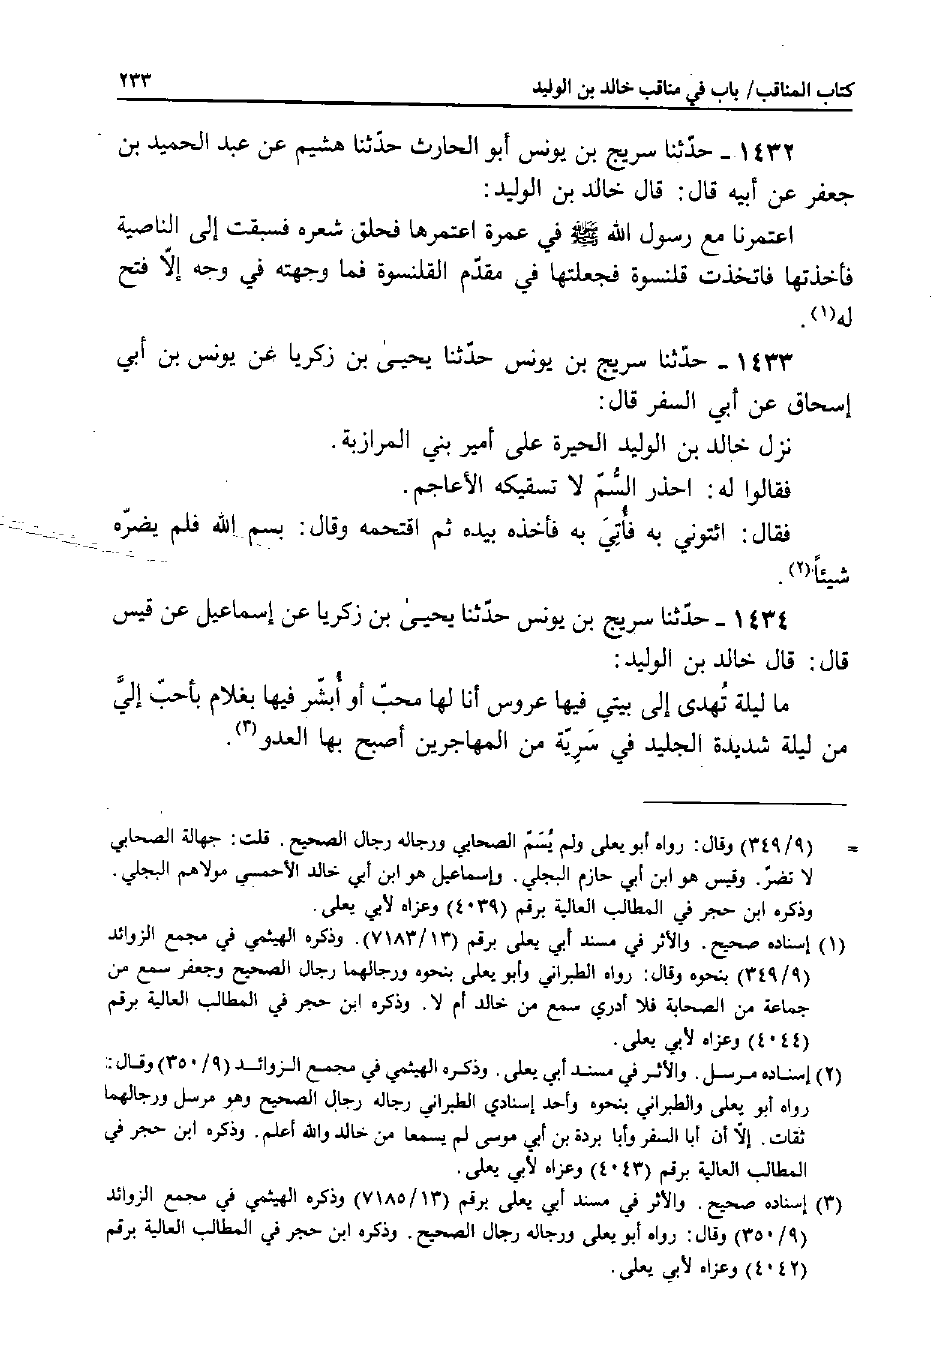 كتاب المناقب/ باب في مناقب خالد بن الوليد
٢٣٣
١٤٣٢ ـ حدّثنا سريج بن يونس أبو الحارث حدّثنا هشيم عن عبد الحميد بن
جعفر عن أبيه قال: قال خالد بن الوليد:
اعتمرنا مع رسول الله ﷺ في عمرة اعتمرها فحلق شعره فسبقت إلى الناصية
فأخذتها فاتخذت قلنسوة فجعلتها في مقدّم القلنسوة فما وجهته في وجه إلّا فتح
له(١).
١٤٣٣ ـ حدّثنا سريج بن يونس حدّثنا يحيىٰ بن زكريا عن يونس بن أبي
إسحاق عن أبي السفر قال:
نزل خالد بن الوليد الحيرة على أمير بني المرازبة.
فقالوا له: احذر السُّمّ لا تسقيكه الأعاجم.
فقال: ائتوني به فأُتِيَ به فأخذه بيده ثم اقتحمه وقال: بسم الله فلم يضرّه
شيئاً(٢).
١٤٣٤ ـ حدّثنا سريج بن يونس حدّثنا يحيىٰ بن زكريا عن إسماعيل عن قيس
قال: قال خالد بن الوليد:
ما ليلة تُهدى إلى بيتي فيها عروس أنا لها محبّ أو أُبشّر فيها بغلام بأحبّ إليَّ
من ليلة شديدة الجليد في سَرِيّة من المهاجرين أصبح بها العدو(٣).
= (٣٤٩/٩) وقال: رواه أبو يعلى ولم يُسَمّ الصحابي ورجاله رجال الصحيح. قلت: جهالة الصحابي
لا تضرّ. وقيس هو ابن أبي حازم البجلي. وإسماعيل هو ابن أبي خالد الأحمسي مولاهم البجلي.
وذكره ابن حجر في المطالب العالية برقم (٤٠٣٩) وعزاه لأبي يعلى.
(١) إسناده صحيح. والأثر في مسند أبي يعلى برقم (٧١٨٣/١٣). وذكره الهيثمي في مجمع الزوائد
(٣٤٩/٩) بنحوه وقال: رواه الطبراني وأبو يعلى بنحوه ورجالهما رجال الصحيح وجعفر سمع من
جماعة من الصحابة فلا أدري سمع من خالد أم لا. وذكره ابن حجر في المطالب العالية برقم
(٤٠٤٤) وعزاه لأبي يعلى.
(٢) إسناده مرسل. والأثر في مسند أبي يعلى. وذكره الهيثمي في مجمع الزوائد (٣٥٠/٩) وقال:
رواه أبو يعلى والطبراني بنحوه وأحد إسنادي الطبراني رجاله رجال الصحيح وهو مرسل ورجالهما
ثقات. إلّا أن أبا السفر وأبا بردة بن أبي موسى لم يسمعا من خالد والله أعلم. وذكره ابن حجر في
المطالب العالية برقم (٤٠٤٣) وعزاه لأبي يعلى.
(٣) إسناده صحيح. والأثر في مسند أبي يعلى برقم (٧١٨٥/١٣) وذكره الهيثمي في مجمع الزوائد
(٣٥٠/٩) وقال: رواه أبو يعلى ورجاله رجال الصحيح. وذكره ابن حجر في المطالب العالية برقم
(٤٠٤٢) وعزاه لأبي يعلى.